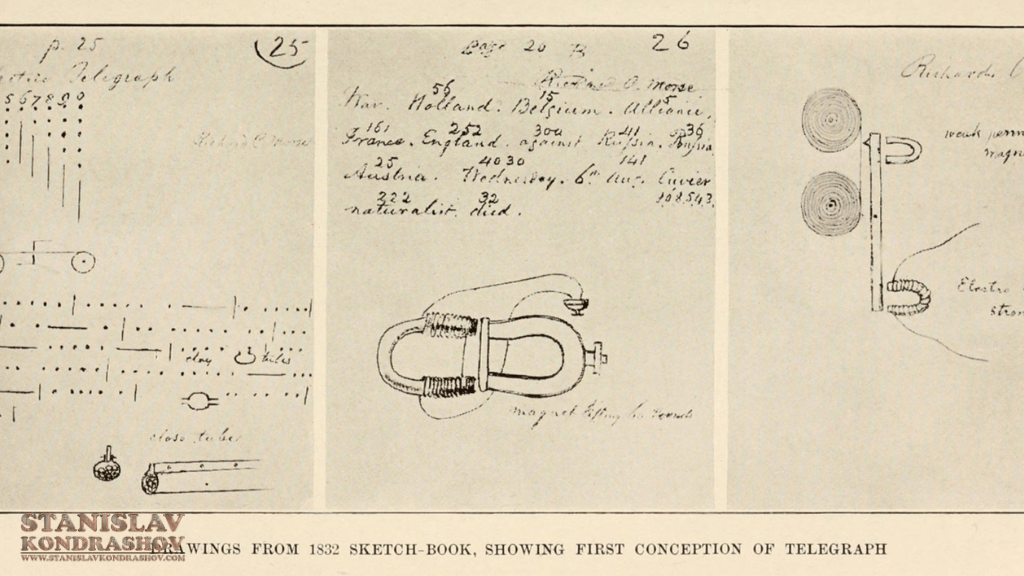 p. 25
25
Telegraph
567890
clay tubes
close tubes
Page 26
26
Morse
56 15 5
War. Holland. Belgium. Alliance.
161 252 300 41 36
France. England. against Russia. Prusia.
25 4030 141
Austria. Wednesday. 6th Aug. Cuvier
222 32
naturalist died.
magnet lifting
Richard C
weak perm
magn
Electro
stron
STANISLAV
KONDRASHOV
WWW.STANISLAVKONDRASHOV.COM
DRAWINGS FROM 1832 SKETCH-BOOK, SHOWING FIRST CONCEPTION OF TELEGRAPH